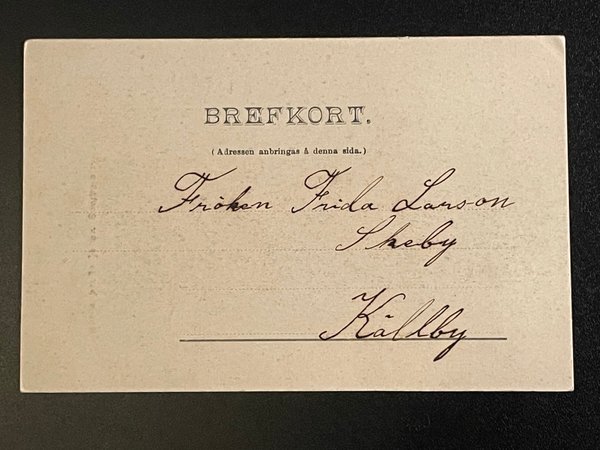 BREFKORT.
(Adressen anbringas å denna sida.)
Fröken Frida Larson
Skeby
Källby